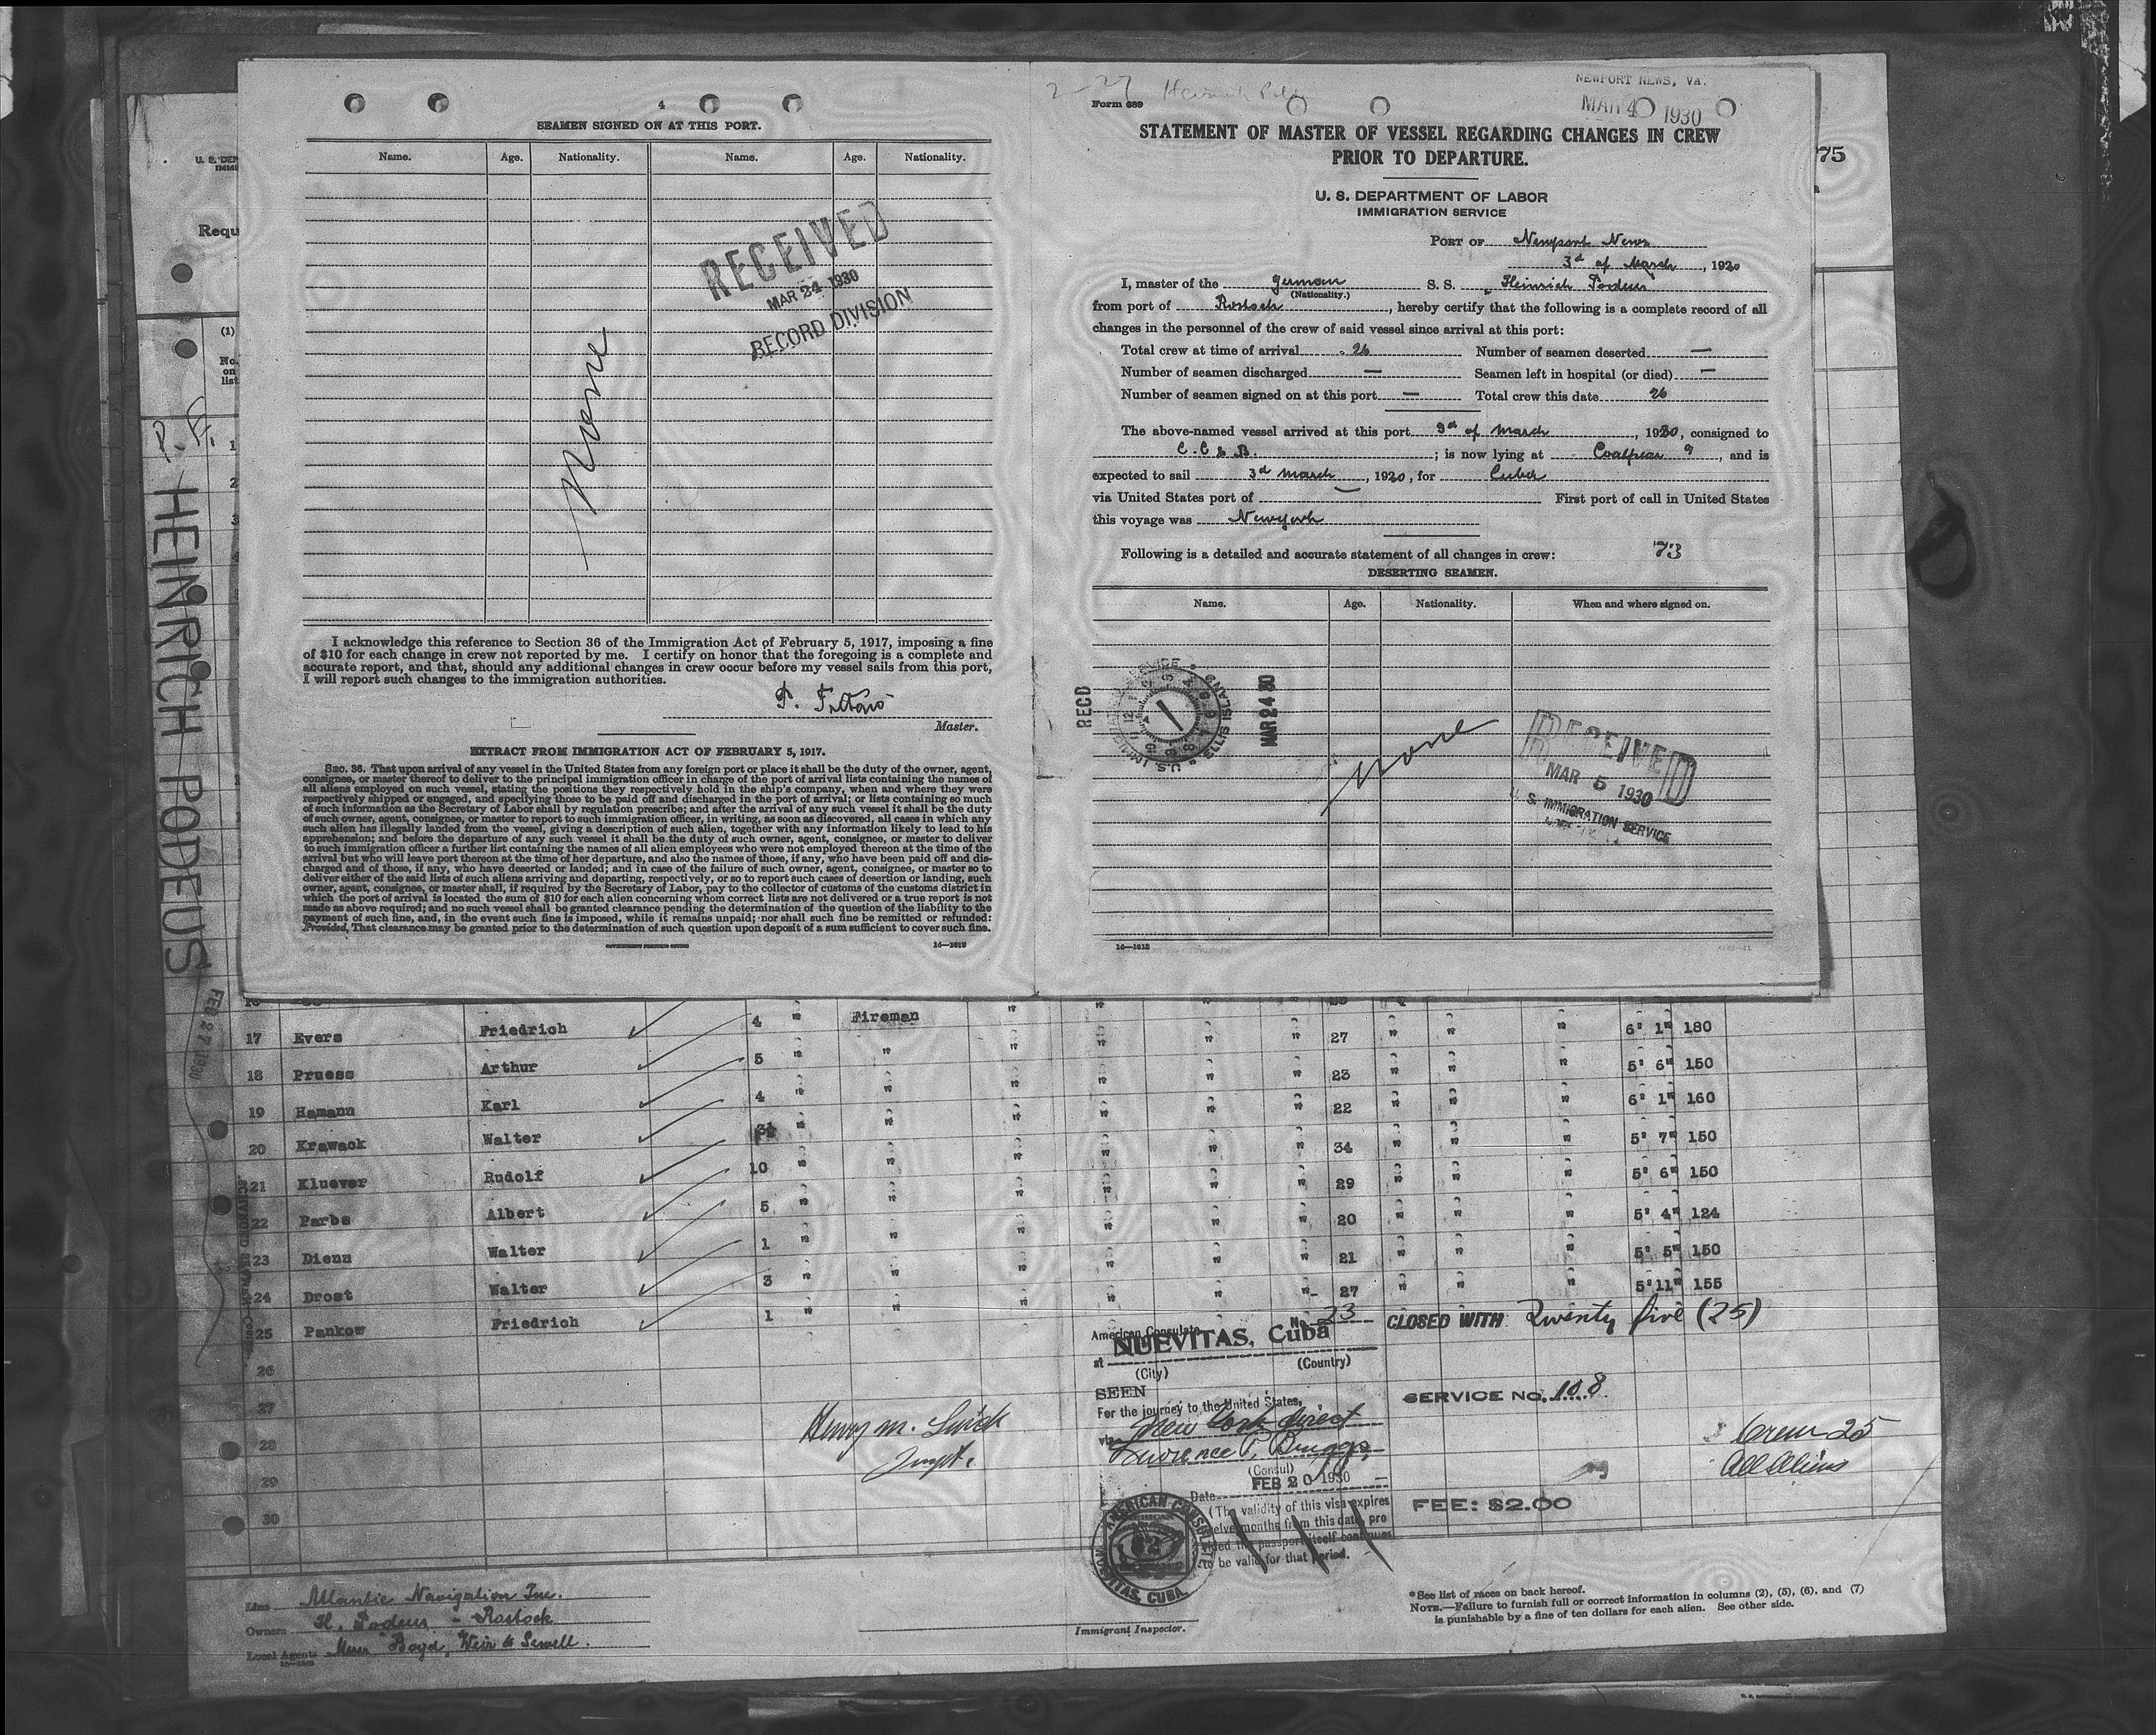 4
SEAMEN SIGNED ON AT THIS PORT.
Name. Age. Nationality. Name. Age. Nationality.
None
RECEIVED
MAR 24 1930
RECORD DIVISION
I acknowledge this reference to Section 36 of the Immigration Act of February 5, 1917, imposing a fine
of $10 for each change in crew not reported by me. I certify on honor that the foregoing is a complete and
accurate report, and that, should any additional changes in crew occur before my vessel sails from this port,
I will report such changes to the immigration authorities.
Master.
EXTRACT FROM IMMIGRATION ACT OF FEBRUARY 5, 1917.
SEC. 36. That upon arrival of any vessel in the United States from any foreign port or place it shall be the duty of the owner, agent,
consignee, or master thereof to deliver to the principal immigration officer in charge of the port of arrival lists containing the names of
all aliens employed on such vessel, stating the positions they respectively hold in the ship's company, when and where they were
respectively shipped or engaged, and specifying those to be paid off and discharged in the port of arrival; or lists containing so much
of such information as the Secretary of Labor shall by regulation prescribe; and after the arrival of any such vessel it shall be the duty
of such owner, agent, consignee, or master to report to such immigration officer, in writing, as soon as discovered, all cases in which any
such alien has illegally landed from the vessel, giving a description of such alien, together with any information likely to lead to his
apprehension; and before the departure of any such vessel it shall be the duty of such owner, agent, consignee, or master to deliver
to such immigration officer a further list containing the names of all alien employees who were not employed thereon at the time of the
arrival but who will leave port thereon at the time of her departure, and also the names of those, if any, who have been paid off and dis-
charged and of those, if any, who have deserted or landed; and in case of the failure of such owner, agent, consignee, or master so to
deliver either of the said lists of such aliens arriving and departing, respectively, or so to report such cases of desertion or landing, such
owner, agent, consignee, or master shall, if required by the Secretary of Labor, pay to the collector of customs of the customs district in
which the port of arrival is located the sum of $10 for each alien concerning whom correct lists are not delivered or a true report is not
made as above required; and no such vessel shall be granted clearance pending the determination of the question of the liability to the
payment of such fine, and, in the event such fine is imposed, while it remains unpaid; nor shall such fine be remitted or refunded:
Provided, That clearance may be granted prior to the determination of such question upon deposit of a sum sufficient to cover such fine.
GOVERNMENT PRINTING OFFICE 14—1618
2-27 Heinrich
NEWPORT NEWS, VA.
MAR 4 1930
Form 689
STATEMENT OF MASTER OF VESSEL REGARDING CHANGES IN CREW
PRIOR TO DEPARTURE.
U. S. DEPARTMENT OF LABOR
IMMIGRATION SERVICE
PORT OF Newport News
3rd of March, 1930
I, master of the german S. S. "Heinrich Podeus"
(Nationality.)
from port of Rostock, hereby certify that the following is a complete record of all
changes in the personnel of the crew of said vessel since arrival at this port:
Total crew at time of arrival 26 Number of seamen deserted —
Number of seamen discharged — Seamen left in hospital (or died) —
Number of seamen signed on at this port — Total crew this date 26
The above-named vessel arrived at this port 3rd of March, 1930, consigned to
C. C & B.; is now lying at Coalpear 9, and is
expected to sail 3rd March, 1930, for Cuba
via United States port of — First port of call in United States
this voyage was Newyork
Following is a detailed and accurate statement of all changes in crew: 73
DESERTING SEAMEN.
Name. Age. Nationality. When and where signed on.
RECD
U.S. IMMIGRATION SERVICE ELLIS ISLAND
MAR 24 30
None
RECEIVED
MAR 5 1930
U. S. IMMIGRATION SERVICE
14—1618
75
U. S. DEP
IMMI
Requ
(1)
No.
on
list
1
2
3
P. F.
HEINRICH PODEUS
FEB 27 1930
17 Evers Friedrich 4 " Fireman " " " 27 " " " 6' 1" 180
18 Pruess Arthur 5 " " " " " 23 " " " 5' 6" 150
19 Hamann Karl 4 " " " " " 22 " " " 6' 1" 160
20 Krawack Walter " " " " " 34 " " " 5' 7" 150
21 Kluever Rudolf 10 " " " " " 29 " " " 5' 6" 150
22 Parbs Albert 5 " " " " " 20 " " " 5' 4" 124
23 Dienn Walter 1 " " " " " 21 " " " 5' 5" 150
24 Drost Walter 3 " " " " " 27 " " " 5'11" 155
25 Pankow Friedrich 1
26
27
28
29
30
Henry M.
Inspt.
No. 23
American Consulate
at NUEVITAS, Cuba
(City) (Country)
SEEN
For the journey to the United States,
via New York direct
Lawrence P. Briggs
(Consul)
Date FEB 20 1930
(The validity of this visa expires
twelve months from this date, pro
vided the passport itself continues
to be valid for that period.
AMERICAN CONSULATE NUEVITAS, CUBA
$2
CLOSED WITH Twenty five (25)
SERVICE NO. 108
FEE: $2.00
Crew 25
All Aliens
Line Atlantic Navigation Inc.
Owners H. Podeus - Rostock
Local Agents Messr Boyd, Weir & Sewell.
Immigrant Inspector.
*See list of races on back hereof.
NOTE.—Failure to furnish full or correct information in columns (2), (5), (6), and (7)
is punishable by a fine of ten dollars for each alien. See other side.